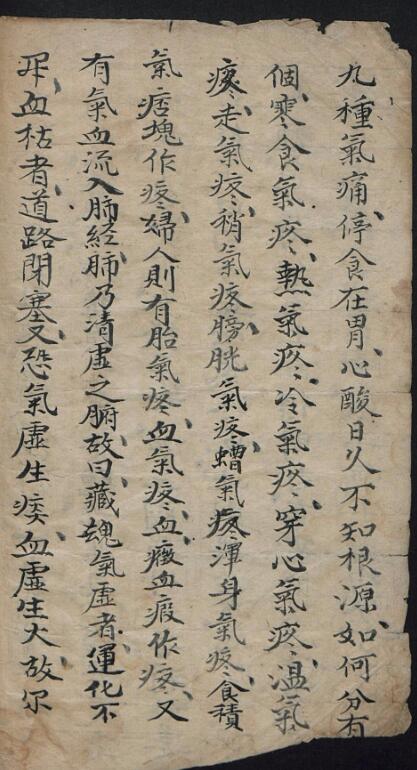 九種氣痛停食在胃心酸日久不知根源如何分有
個寒食氣疼熱氣疼冷氣疼穿心氣疼溫氣
疼走氣疼稍氣疼膀胱氣疼蟠氣疼渾身氣疼食積
氣痞塊作疼婦人則有胎氣疼血氣疼血癥血瘕作疼又
有氣血流入肺經肺乃清虛之腑故曰藏魄氣虛者運化不
血枯者道路閉塞又恐氣虛生痰血虛生火故尔